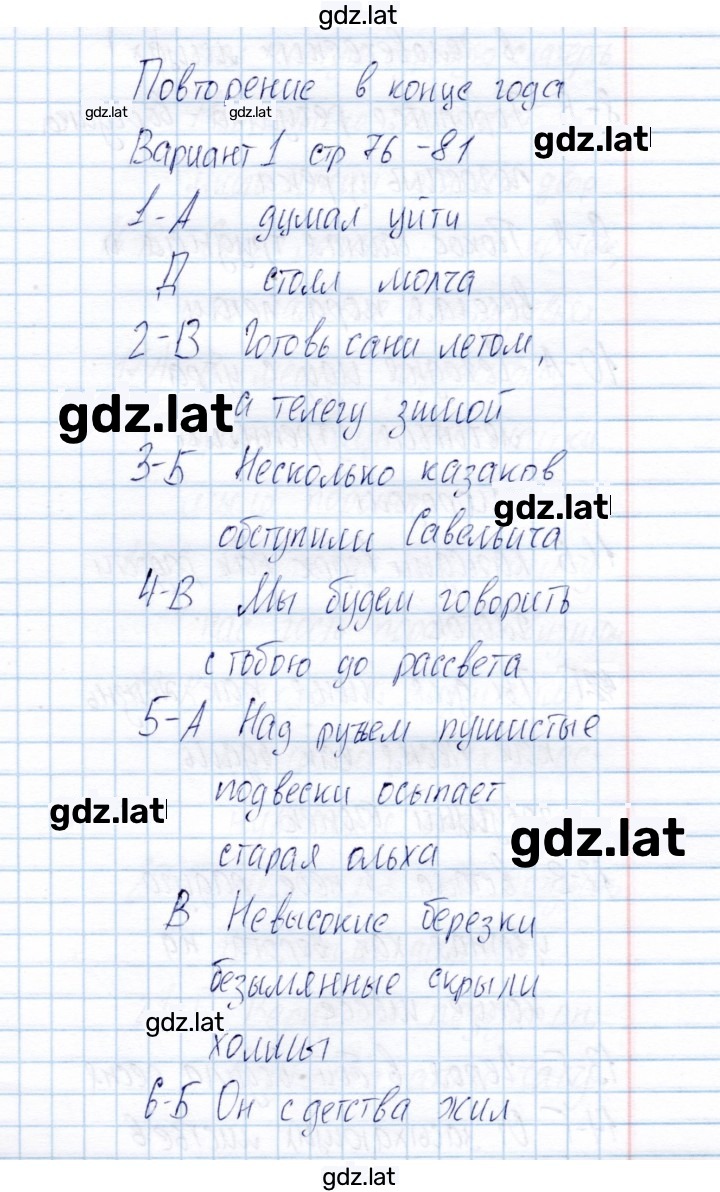 gdz.lat
Повторение в конце года
gdz.lat gdz.lat
gdz.lat
Вариант 1 стр 76-81
1-А думал уйти
Д стоял молча
2-В Готовь сани летом,
gdz.lat
а телегу зимой
3-Б Несколько казаков
gdz.lat
обступили Савельича
4-В Мы будем говорить
с тобою до рассвета
5-А Над ручьем пушистые
подвески осыпает
gdz.lat
gdz.lat
старая ольха
В Невысокие березки
безымянные скрыли
gdz.lat
холмы
6-Б Он с детства жил
gdz.lat